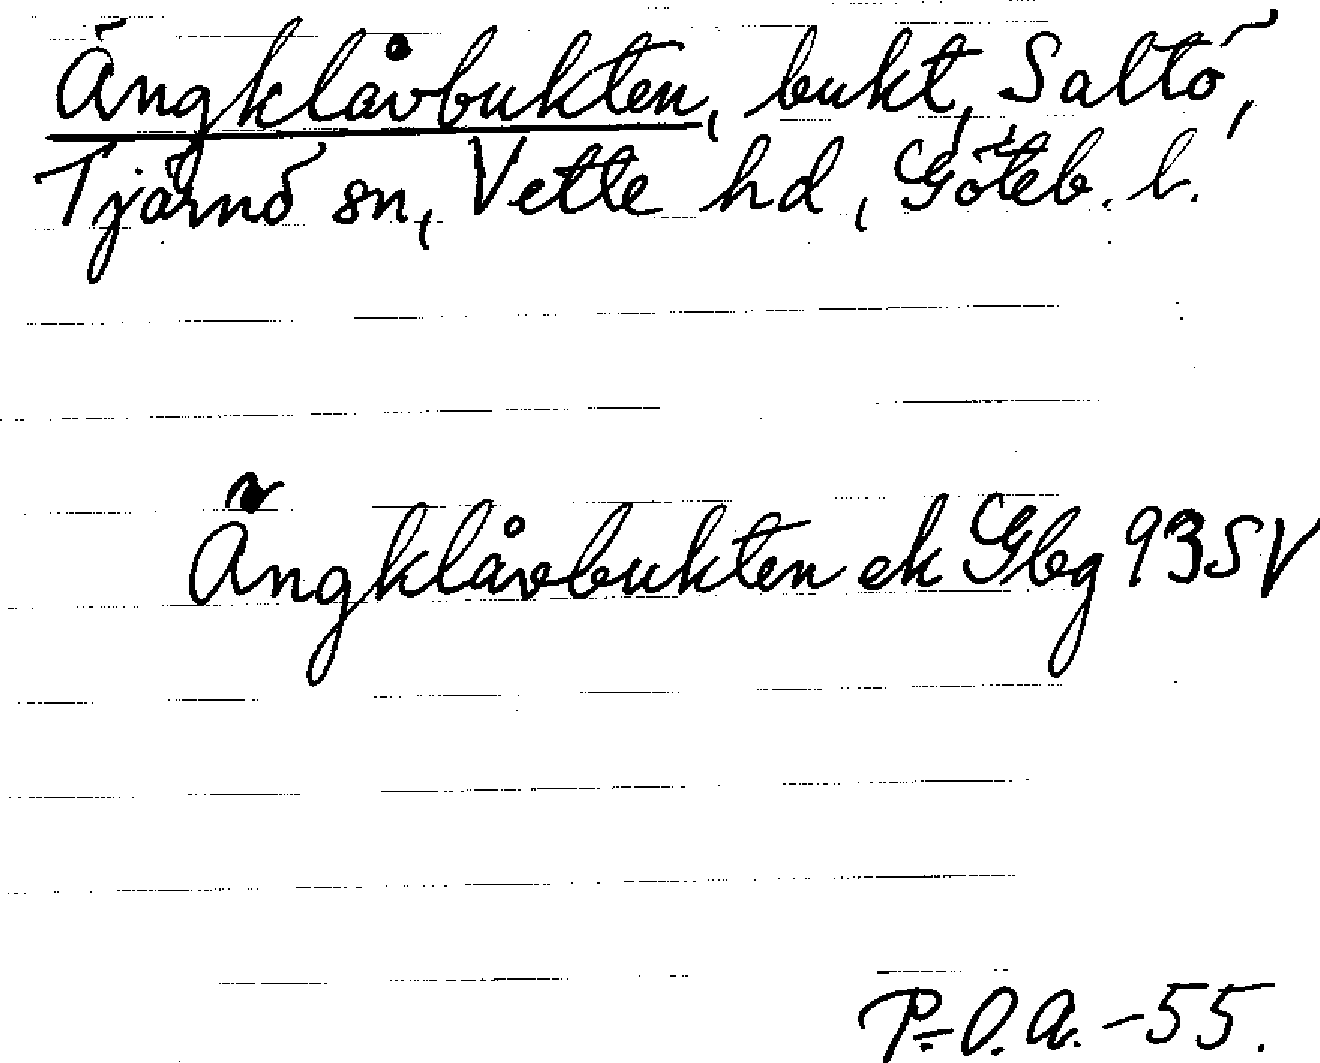 Ängklåvbukten, bukt, Saltö,
Tjärnö sn, Vette hd, Göteb. l.
Ängklåvbukten ek Gbg 93SV
P-O.A. -55.